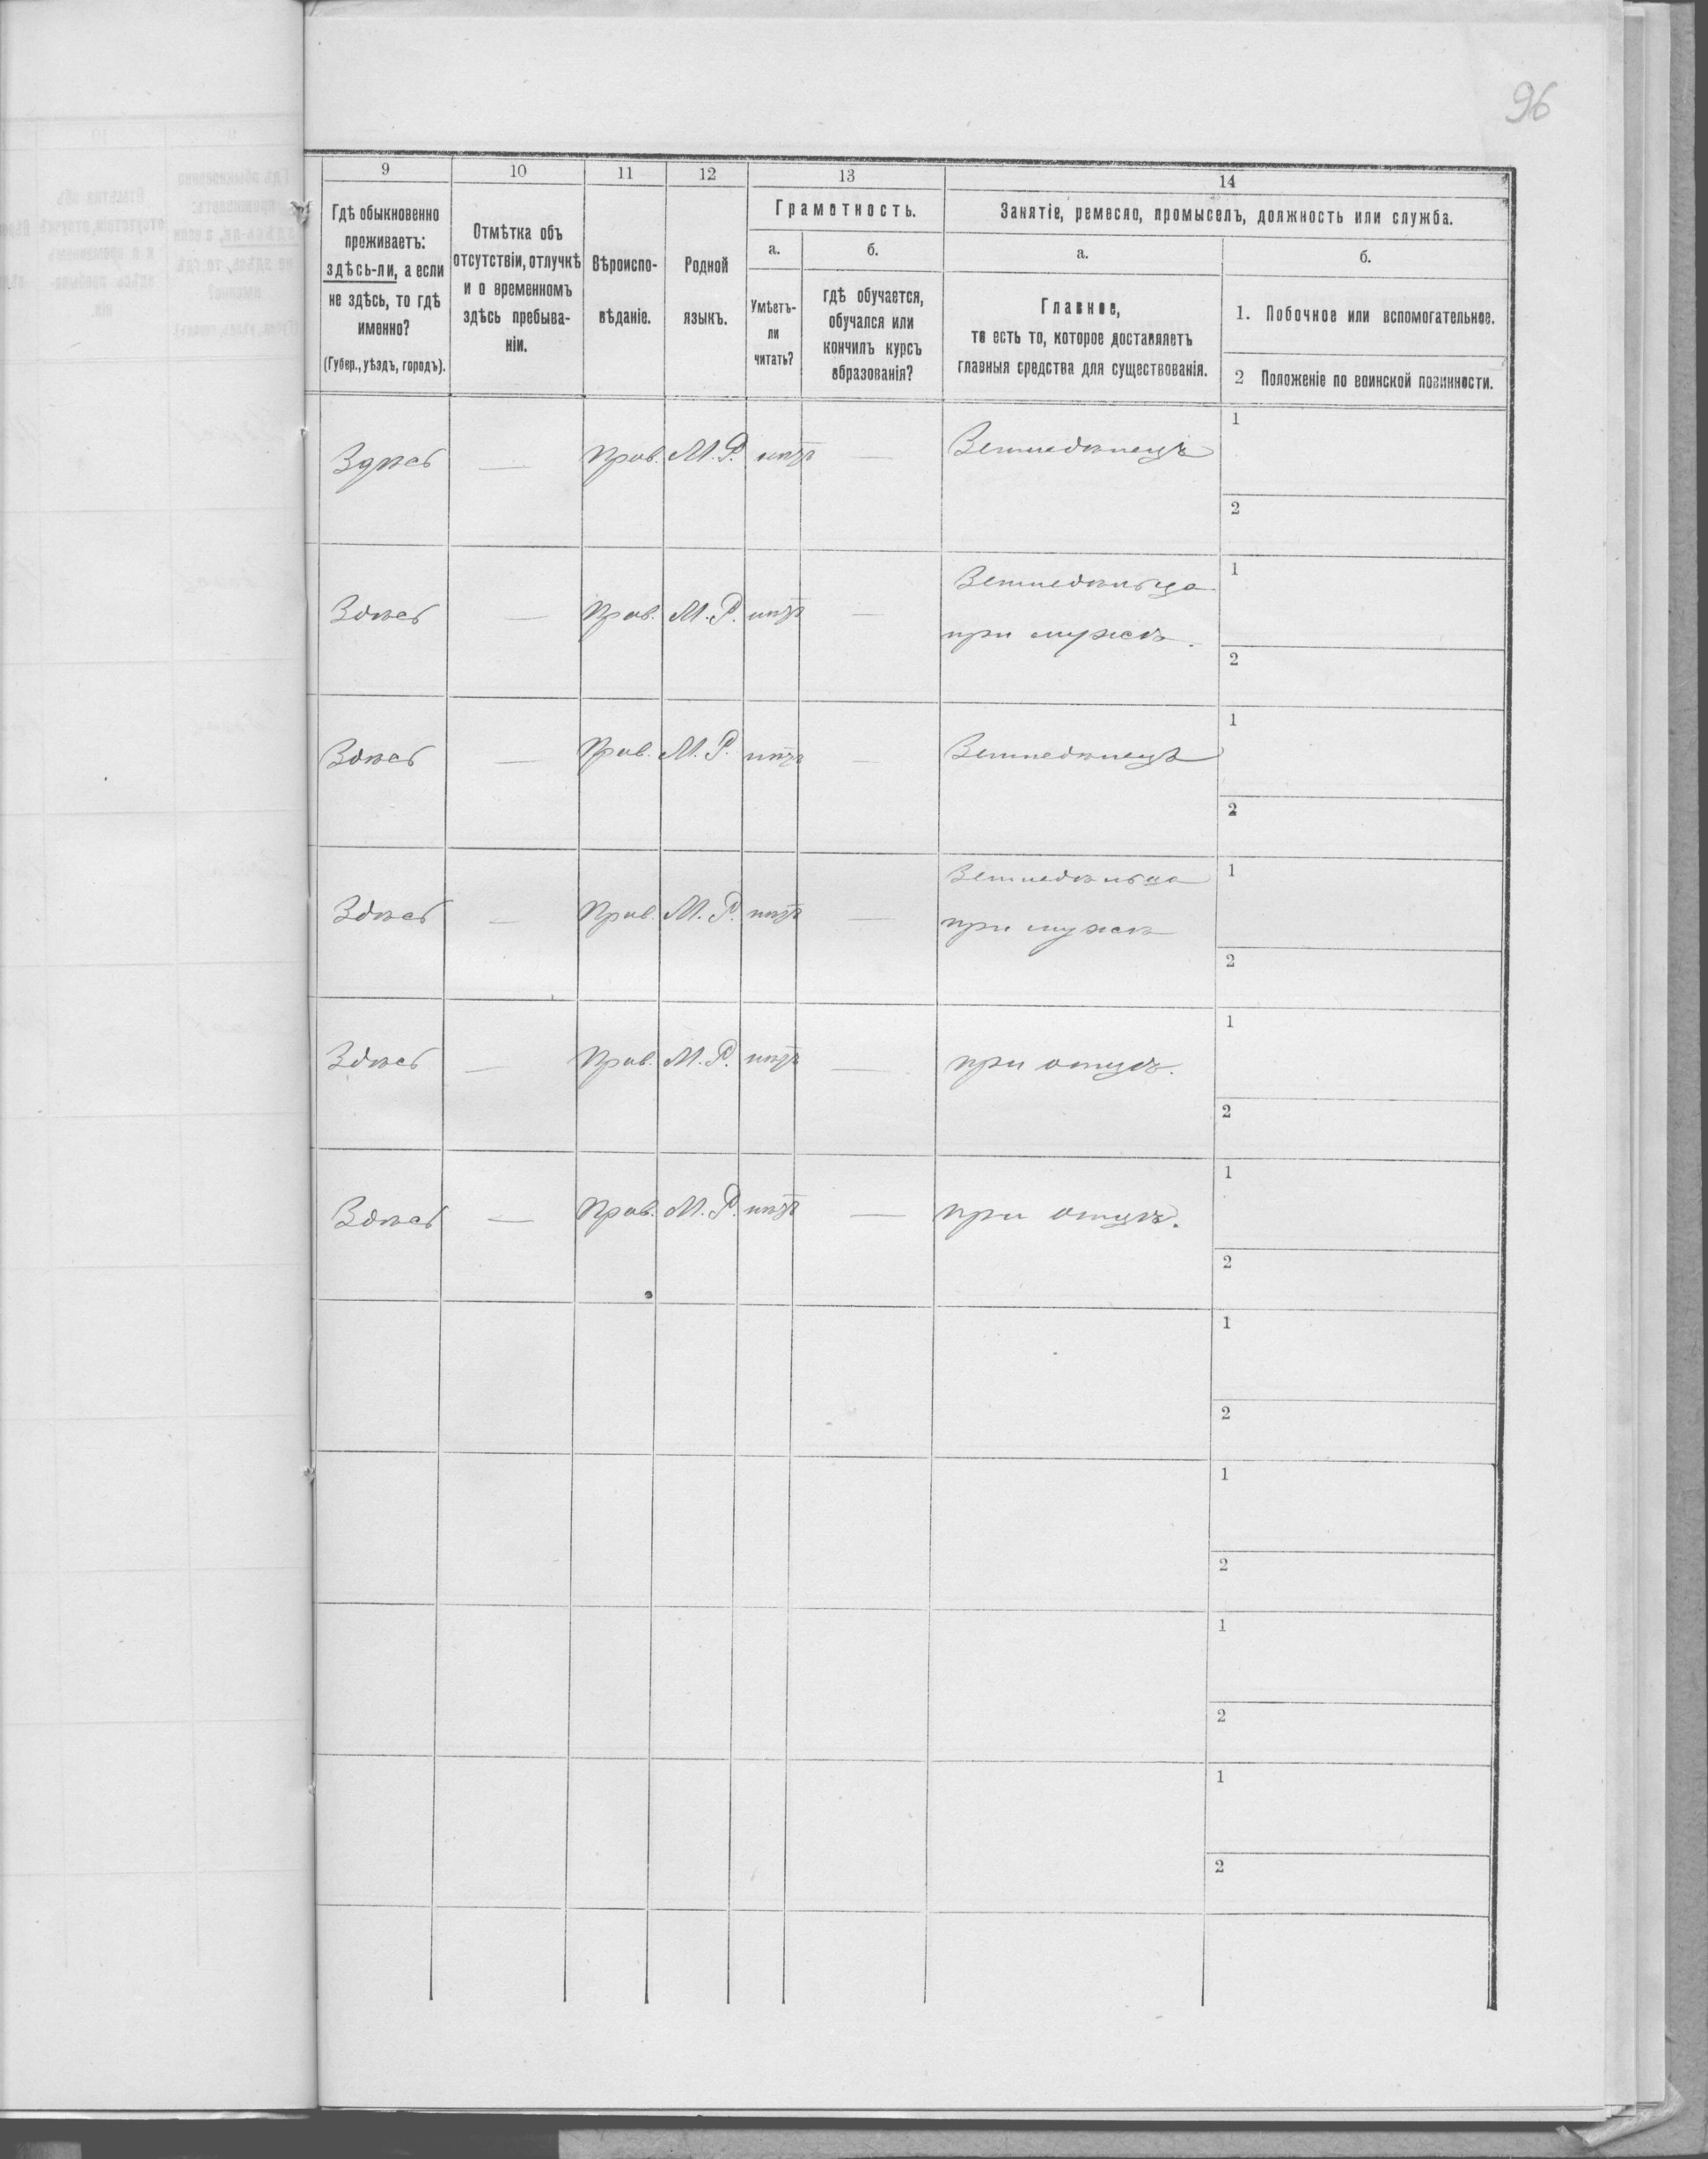 96
9 10 11 12 13 14
Гдѣ обыкновенно
проживаетъ:
здѣсь-ли, а если
не здѣсь, то гдѣ
именно?
(Губер., уѣздъ, городъ).
Отмѣтка объ
отсутствіи, отлучкѣ
и о временномъ
здѣсь пребыва-
ніи.
Вѣроиспо-
вѣданіе.
Родной
языкъ.
Грамотность.
а. б.
Умѣетъ-
ли
читать?
гдѣ обучается,
обучался или
кончилъ курсъ
образованія?
Занятіе, ремесло, промыселъ, должность или служба.
а. б.
Главное,
то есть то, которое доставляетъ
главныя средства для существованія.
1. Побочное или вспомогательное.
2 Положеніе по воинской повинности.
Здѣсь — Прав. М. Р. нѣтъ — Земледѣлецъ 1
2
Здѣсь — Прав. М. Р. нѣтъ — Земледѣльца 1
при мужѣ. 2
Здѣсь — Прав. М. Р. нѣтъ — Земледѣлецъ 1
2
Здѣсь — Прав. М. Р. нѣтъ — Земледѣльца 1
при мужѣ 2
Здѣсь — Прав. М. Р. нѣтъ — при отцѣ. 1
2
Здѣсь — Прав. М. Р. нѣтъ — при отцѣ. 1
2
1
2
1
2
1
2
1
2